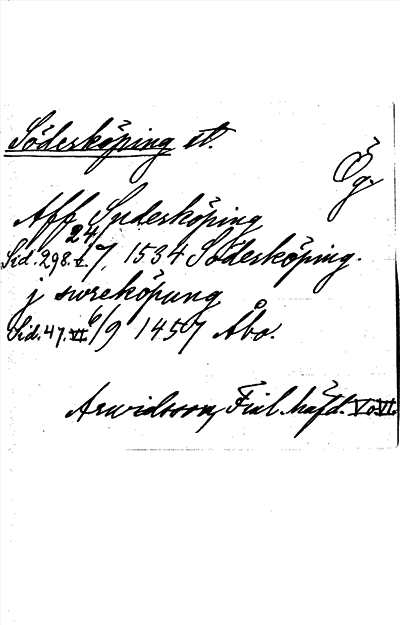 Söderköping st.
Ög.
Aff Suderköping
Sid. 298. V. 24/7, 1534 Söderköping.
j swreköpung
Sid. 47. VI. 6/9 1457 Åbo.
Arwidsson, Finl. häfd. V o VI.